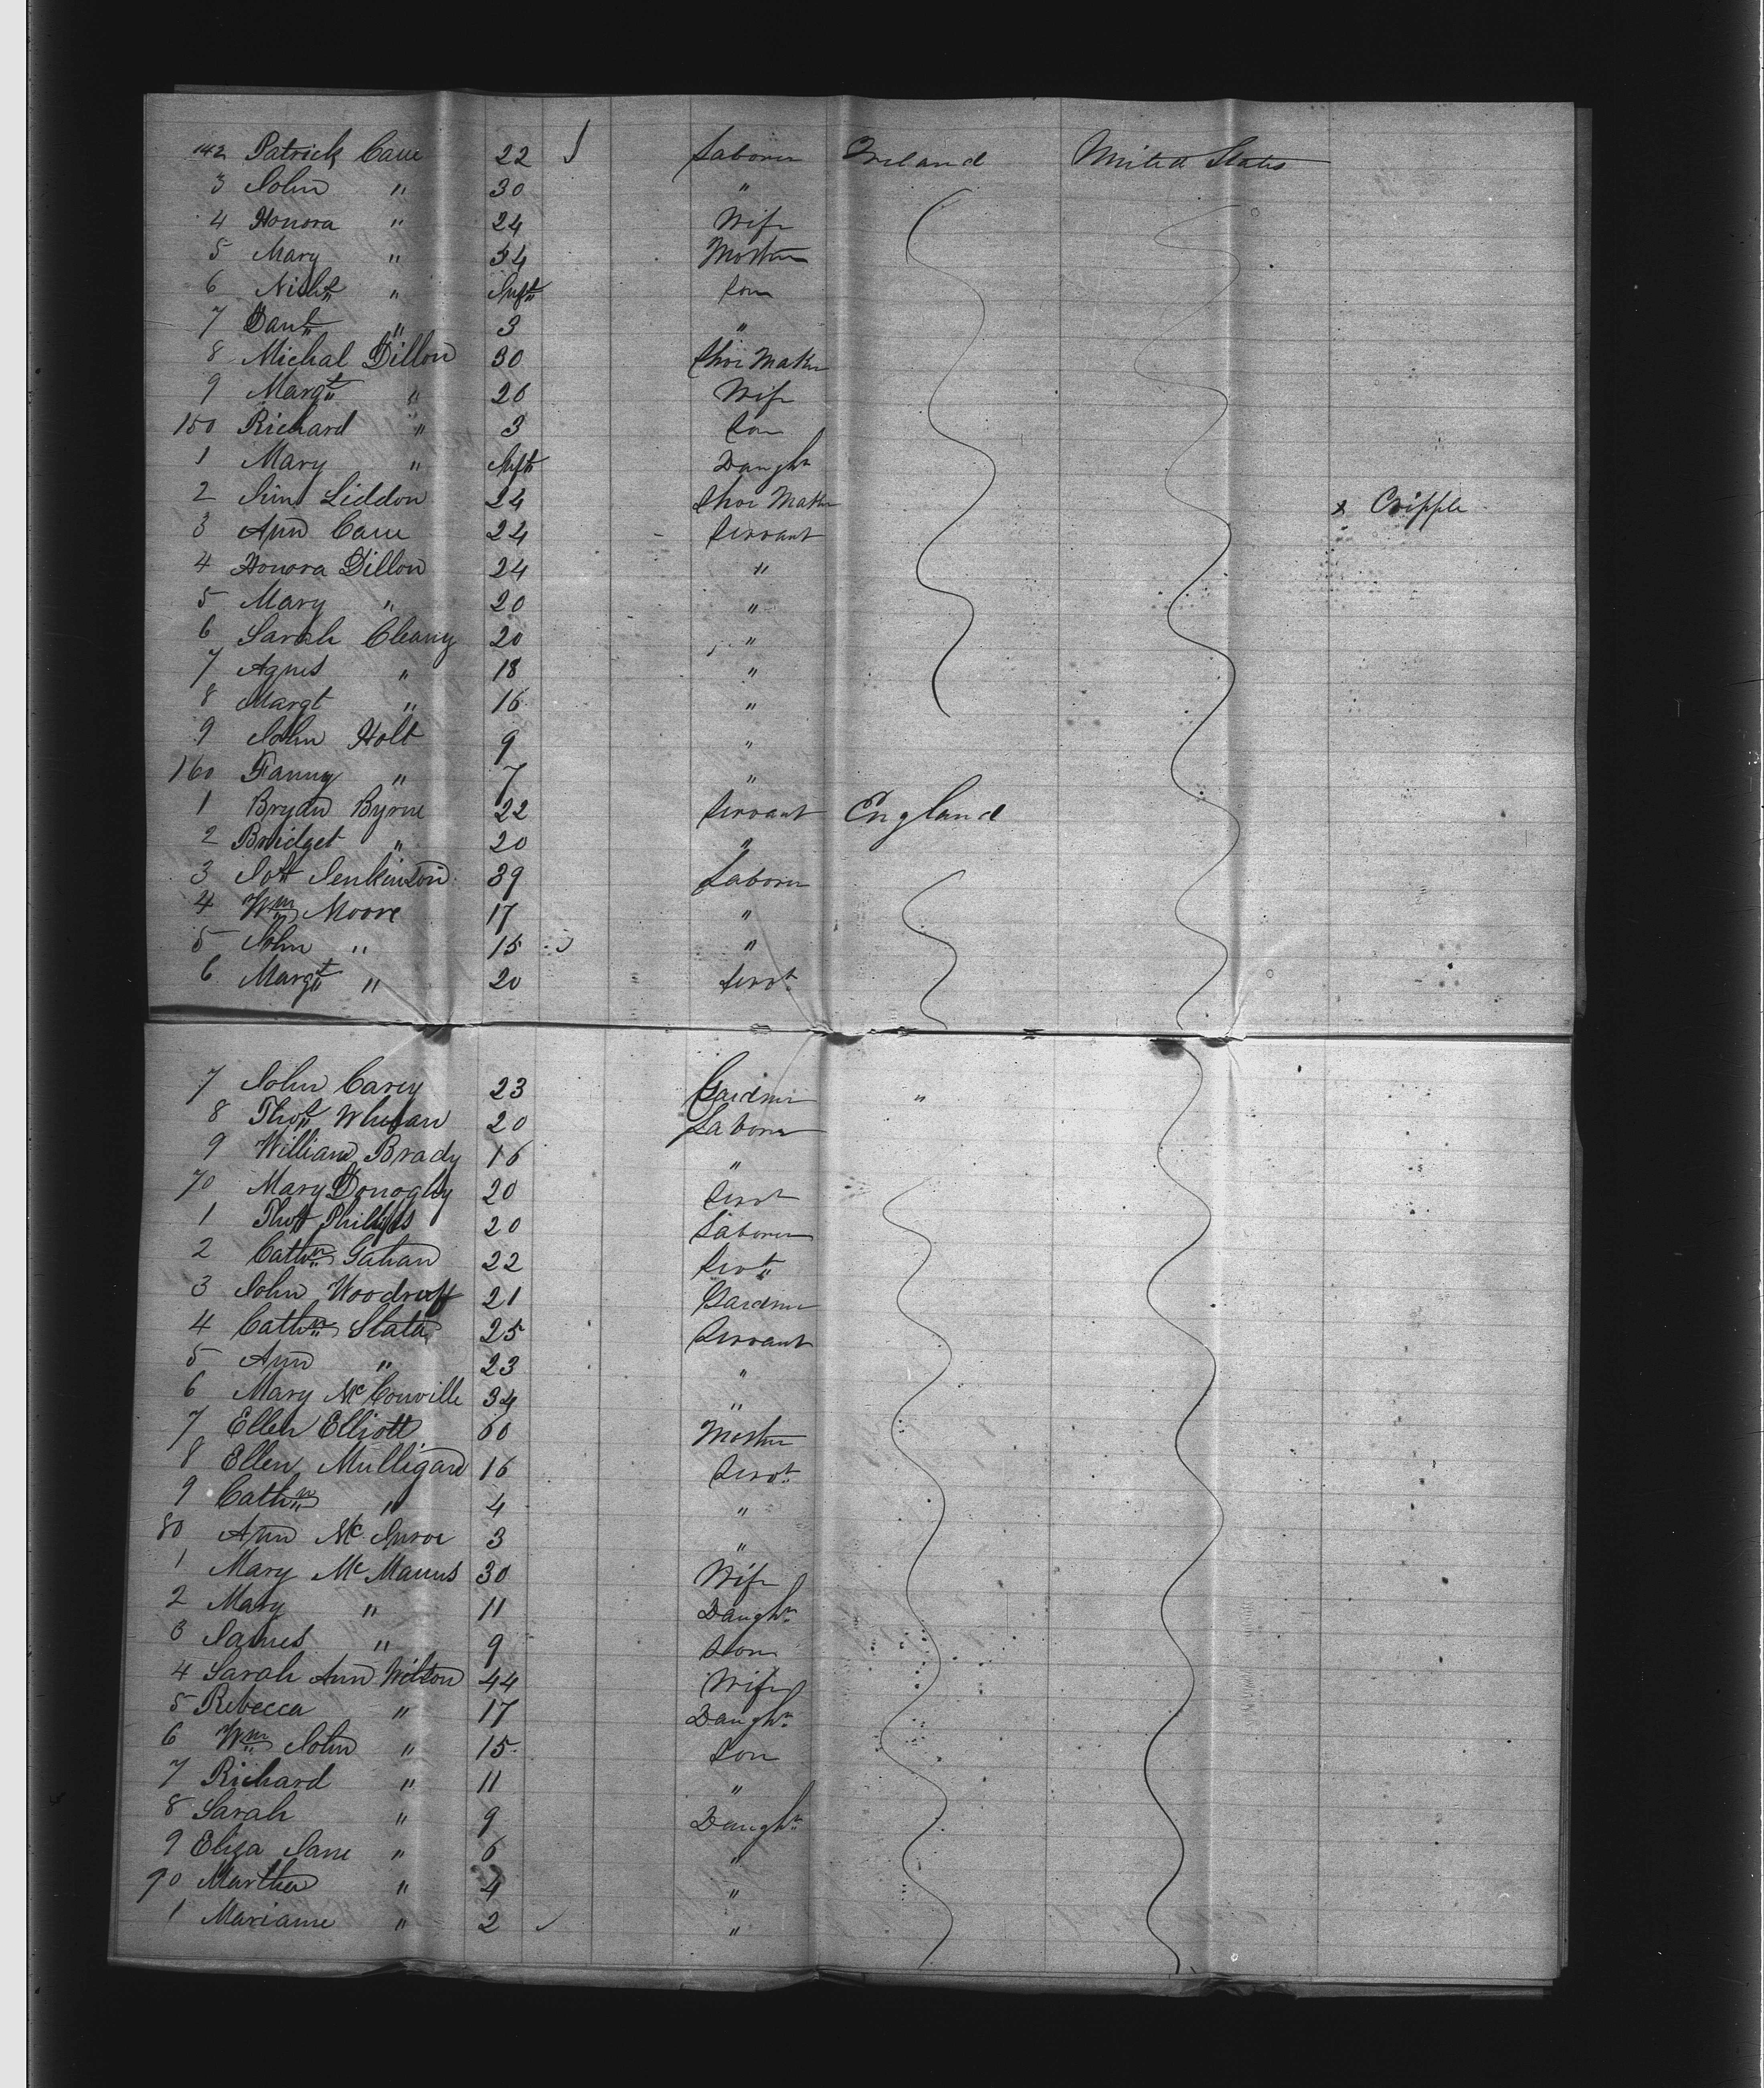 142 Patrick Cane 22 Laborer Ireland United States
3 John " 30 "
4 Honora " 24 Wife
5 Mary " 54 Mother
6 Nichs " Inft Son
7 Danl " 3 "
8 Michal Dillon 30 Shoe Maker
9 Margt " 26 Wife
150 Richard " 3 Son
1 Mary " Inft Daughr
2 Jim Liddon 24 Shoe Maker x Cripple
3 Ann Cane 24 Servant
4 Honora Dillon 24 "
5 Mary " 20 "
6 Sarah Cleany 20 "
7 Agnes " 18 "
8 Margt " 16 "
9 John Holt 9 "
160 Fanny " 7 "
1 Bryan Byrne 22 Servant England
2 Bridget " 20 "
3 Jos Jenkinson 39 Laborer
4 Wm Moore 17 "
5 John " 15 "
6 Margt " 20 Servt
7 John Carey 23 Gardner "
8 Thos Whelan 20 Laborer
9 William Brady 16 "
70 Mary Donoghy 20 Servt
1 Thos Phillips 20 Laborer
2 Cathn Gahan 22 Servt
3 John Woodruff 21 Gardner
4 Cathn Slater 25 Servant
5 Ann " 23 "
6 Mary McConville 34 "
7 Ellen Elliott 60 Mother
8 Ellen Mulligan 16 Servt
9 Cathn " 4 "
80 Ann Mc 3 "
1 Mary McManus 30 Wife
2 Mary " 11 Daughr
3 James " 9 Son
4 Sarah Ann Wilson 44 Wife
5 Rebecca " 17 Daughr
6 Wm John " 15 Son
7 Richard " 11 "
8 Sarah " 9 Daughr
9 Eliza Jane " 6 "
90 Martha " 4 "
1 Mariane " 2 "